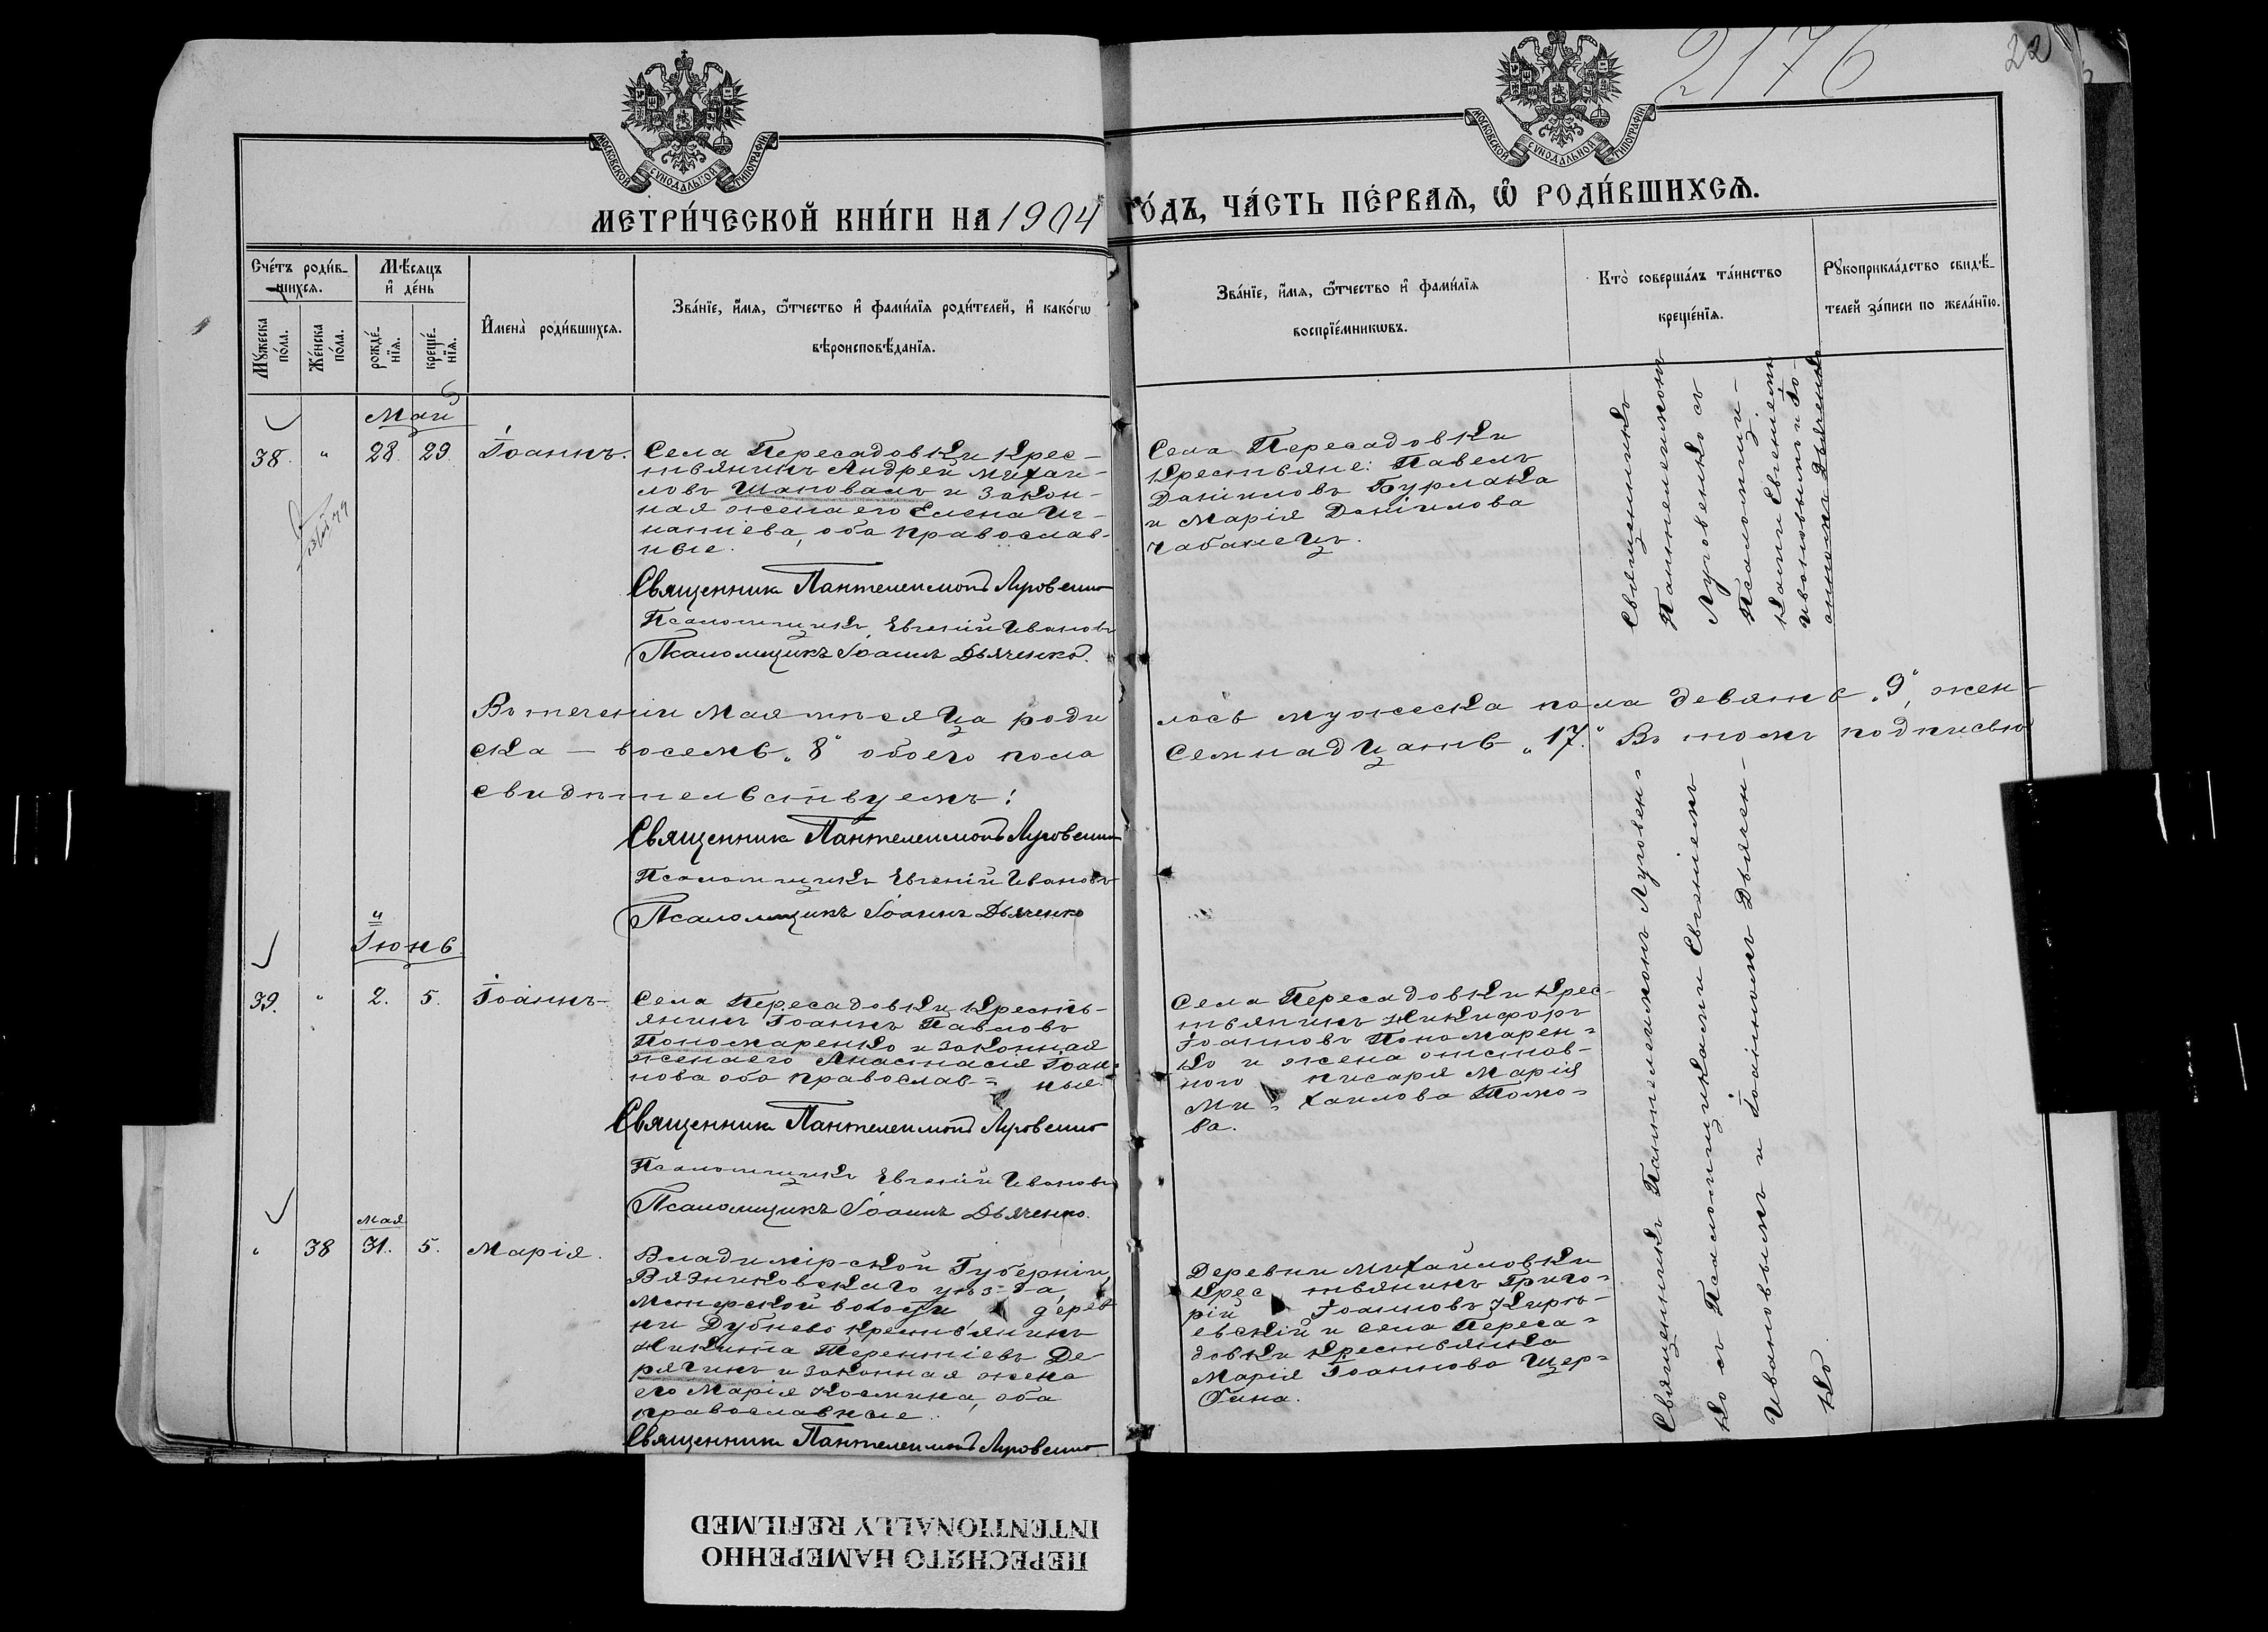 2176
22
МОСКОВСКОЙ СУНОДАЛЬНОЙ ТИПОГРАФІИ
МОСКОВСКОЙ СУНОДАЛЬНОЙ ТИПОГРАФІИ
МЕТРИ́ЧЕСКОЙ КНИ́ГИ НА 1904 ГО́ДЪ, ЧА́СТЬ ПЕ́РВАѦ, Ѽ РОДИ́ВШИХСѦ.
Сче́тъ роди́в-
шихсѧ.
Мꙋ́жеска
по́ла.
Же́нска
по́ла.
Мѣ́сѧцъ
и҆ де́нь
рожде́-
нїѧ.
креще́-
нїѧ.
И҆мена̀ роди́вшихсѧ.
Зва́нїе, и҆́мѧ, ѻ҆́тчество и҆ фами́лїѧ роди́телей, и҆ како́гѡ
вѣроисповѣ́данїѧ.
Зва́нїе, и҆́мѧ, ѻ҆́тчество и҆ фами́лїѧ
воспрїе́мникѡвъ.
Кто̀ соверша́лъ та́инство
креще́нїѧ.
Рꙋкоприкла́дство свидѣ́-
телей за́писи по жела́нїю.
Май
38. " 28. 29. Іоаннъ.
Села Пересадовки крес-
тьянинъ Андрей Михаи-
ловъ Шаповалъ и закон-
ная жена его Елена Иг-
натіева, оба православ-
ные.
Священникъ Пантелеимонъ Луговенко
Псаломщикъ Евгеній Ивановъ
Псаломщикъ Іоаннъ Дьяченко.
Села Пересадовки
крестьяне: Павелъ
Даніиловъ Бурлака
и Марія Даніилова
Чабанецъ.
Священникъ
Пантелеимонъ
Луговенко съ
Псаломщи-
ками Евгеніемъ
Ивановымъ и Іо-
анномъ Дьяченко
Въ теченіи Мая мѣсяца роди
лось мужеска пола девять „9", жен-
ска — восемь „8" обоего пола
семнадцать „17." Въ томъ подписью
свидѣтельствуемъ:
Священникъ Пантелеимонъ Луговенко
Псаломщикъ Евгеній Ивановъ
Псаломщикъ Іоаннъ Дьяченко
Іюнь
39. " 2. 5. Іоаннъ
Села Пересадовки кресть-
янинъ Іоаннъ Павловъ
Пономаренко и законная
жена его Анастасія Іоан-
нова оба православ= ные.
Священникъ Пантелеимонъ Луговенко
Псаломщикъ Евгеній Ивановъ
Псаломщикъ Іоаннъ Дьяченко.
Села Пересадовки крес-
тьянинъ Никифоръ
Іоанновъ Пономарен=
ко и жена отстав-
ного писаря Марія
Ми= хаилова
ва.
Мая
" 38 31. 5. Марія.
Владимірской Губерніи,
Вязниковскаго уѣзда,
Мстерской волости дерев
ни Дубнево крестьянинъ
Никита Терентіевъ Де
рягинъ и законная жена
его Марія Космина, оба
православные.
Священникъ Пантелеимонъ Луговенко
Деревни Михайловки
крес тьянинъ Григо=
рій Іоанновъ Кирѣ-
евскій и села Переса=
довки крестьянка
Марія Іоаннова Щер=
бина.
Священникъ Пантелеимонъ Луговен=
ко съ Псаломщиками Евгеніемъ
Ивановымъ и Іоанномъ Дьячен-
ко
ПЕРЕСНЯТО НАМЕРЕННО
INTENTIONALLY REFILMED